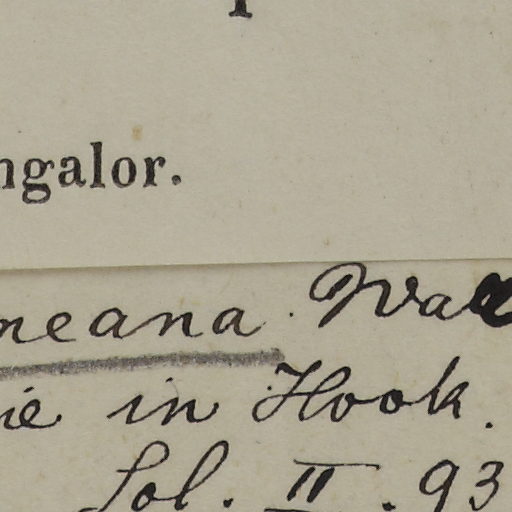 ngalor.
neana. Wall
ie in Hook.
Sol. II. 93